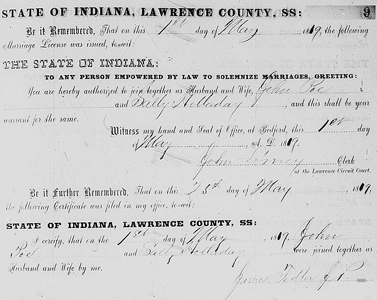 STATE OF INDIANA, LAWRENCE COUNTY, SS: 9
Be it Remembered, That on this 1st day of May 1819, the following
Marriage License was issued, towit:
THE STATE OF INDIANA:
TO ANY PERSON EMPOWERED BY LAW TO SOLEMNIZE MARRIAGES, GREETING:
You are hereby authorized to join together as Husband and Wife, John Poe
and Sally Holladay, and this shall be your
warrant for the same.
Witness my hand and Seal of Office, at Bedford, this 1st day
of May A. D. 1819.
John Clerk
of the Lawrence Circuit Court.
Be it Further Remembered, That on this 25th day of May 1819,
the following Certificate was filed in my office, towit:
STATE OF INDIANA, LAWRENCE COUNTY, SS:
I certify, that on the day of May 1819. John
Poe and Sally Holladay were joined together as
Husband and Wife by me.
James J. P.